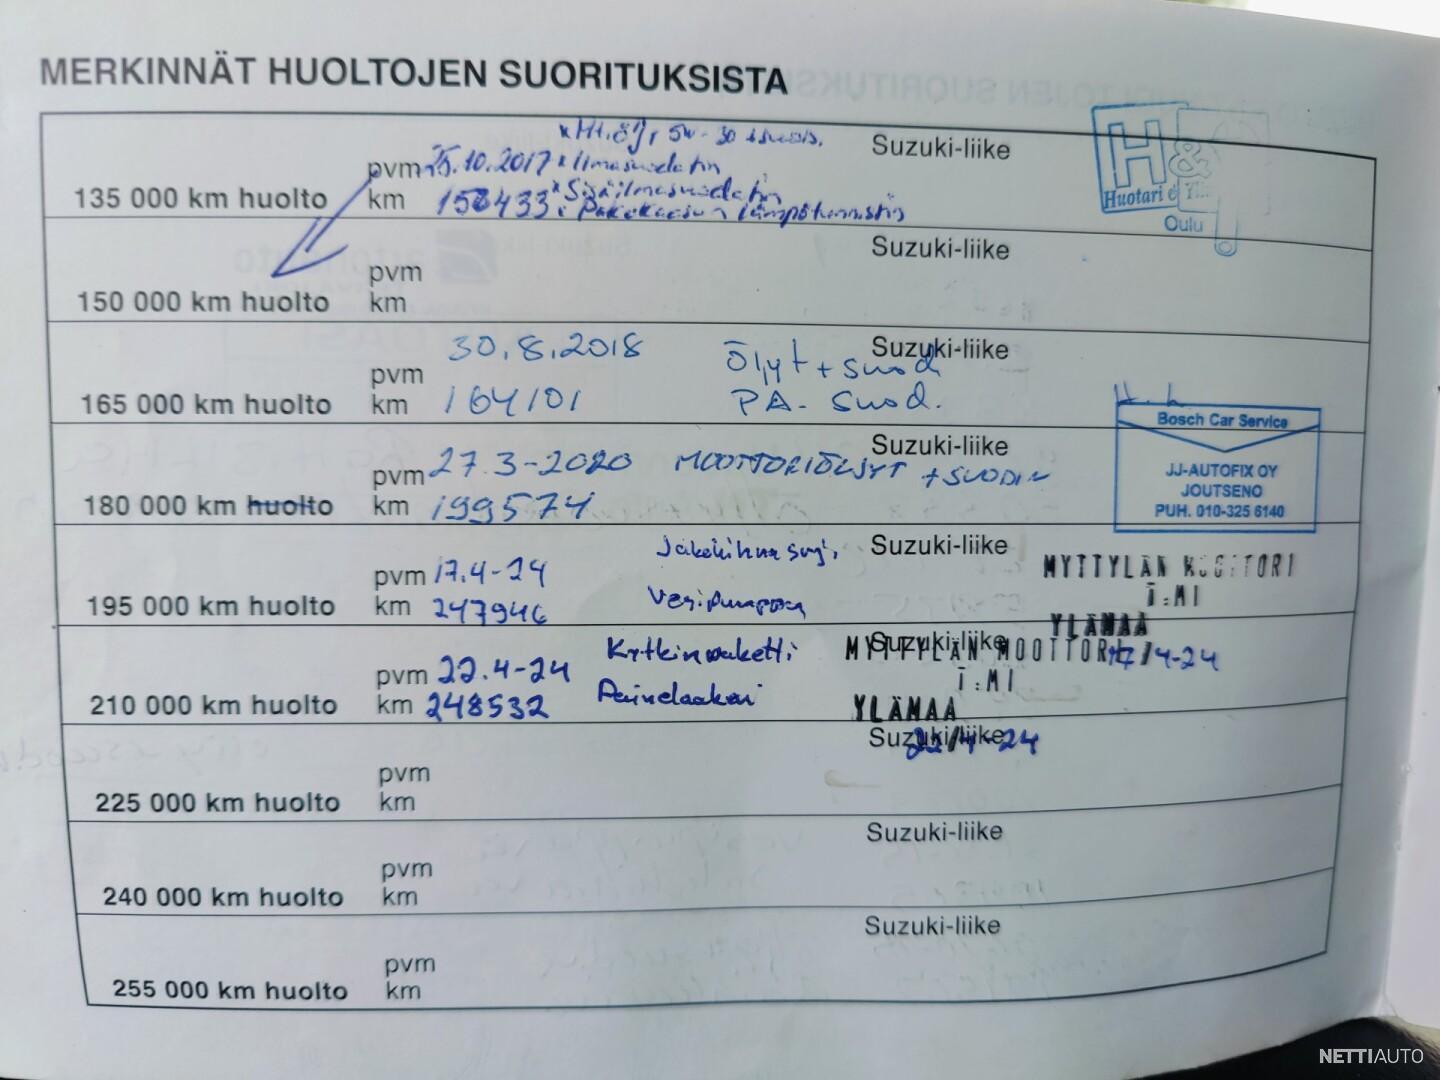 MERKINNÄT HUOLTOJEN SUORITUKSISTA
5W-30
Suzuki-liike
pvm 25.10.2017 x Ilmasuodatin
135 000 km huolto km x Sisäilmasuodatin
Pakokaasun lämpötunnistin
H&
Huotari
Oulu
Suzuki-liike
pvm
150 000 km huolto km
30.8.2018 Öljyt + suod Suzuki-liike
pvm
165 000 km huolto km 164101 PA- suod.
Suzuki-liike
pvm 27.3-2020 MOOTTORIÖLJYT + SUODIN
180 000 km huolto km 199574
Bosch Car Service
JJ-AUTOFIX OY
JOUTSENO
PUH. 010-325 6140
Suzuki-liike
pvm 17.4-24
195 000 km huolto km 247946 Vesipumppu
MYTTYLÄN MOOTTORI
T:MI
YLÄMAA
17/4-24
Suzuki-liike
pvm 22.4-24 Kytkinpaketti
210 000 km huolto km 248532 Painelaakeri
MYTTYLÄN MOOTTORI
T:MI
YLÄMAA
22/4-24
Suzuki-liike
pvm
225 000 km huolto km
Suzuki-liike
pvm
240 000 km huolto km
Suzuki-liike
pvm
255 000 km huolto km
NETTIAUTO